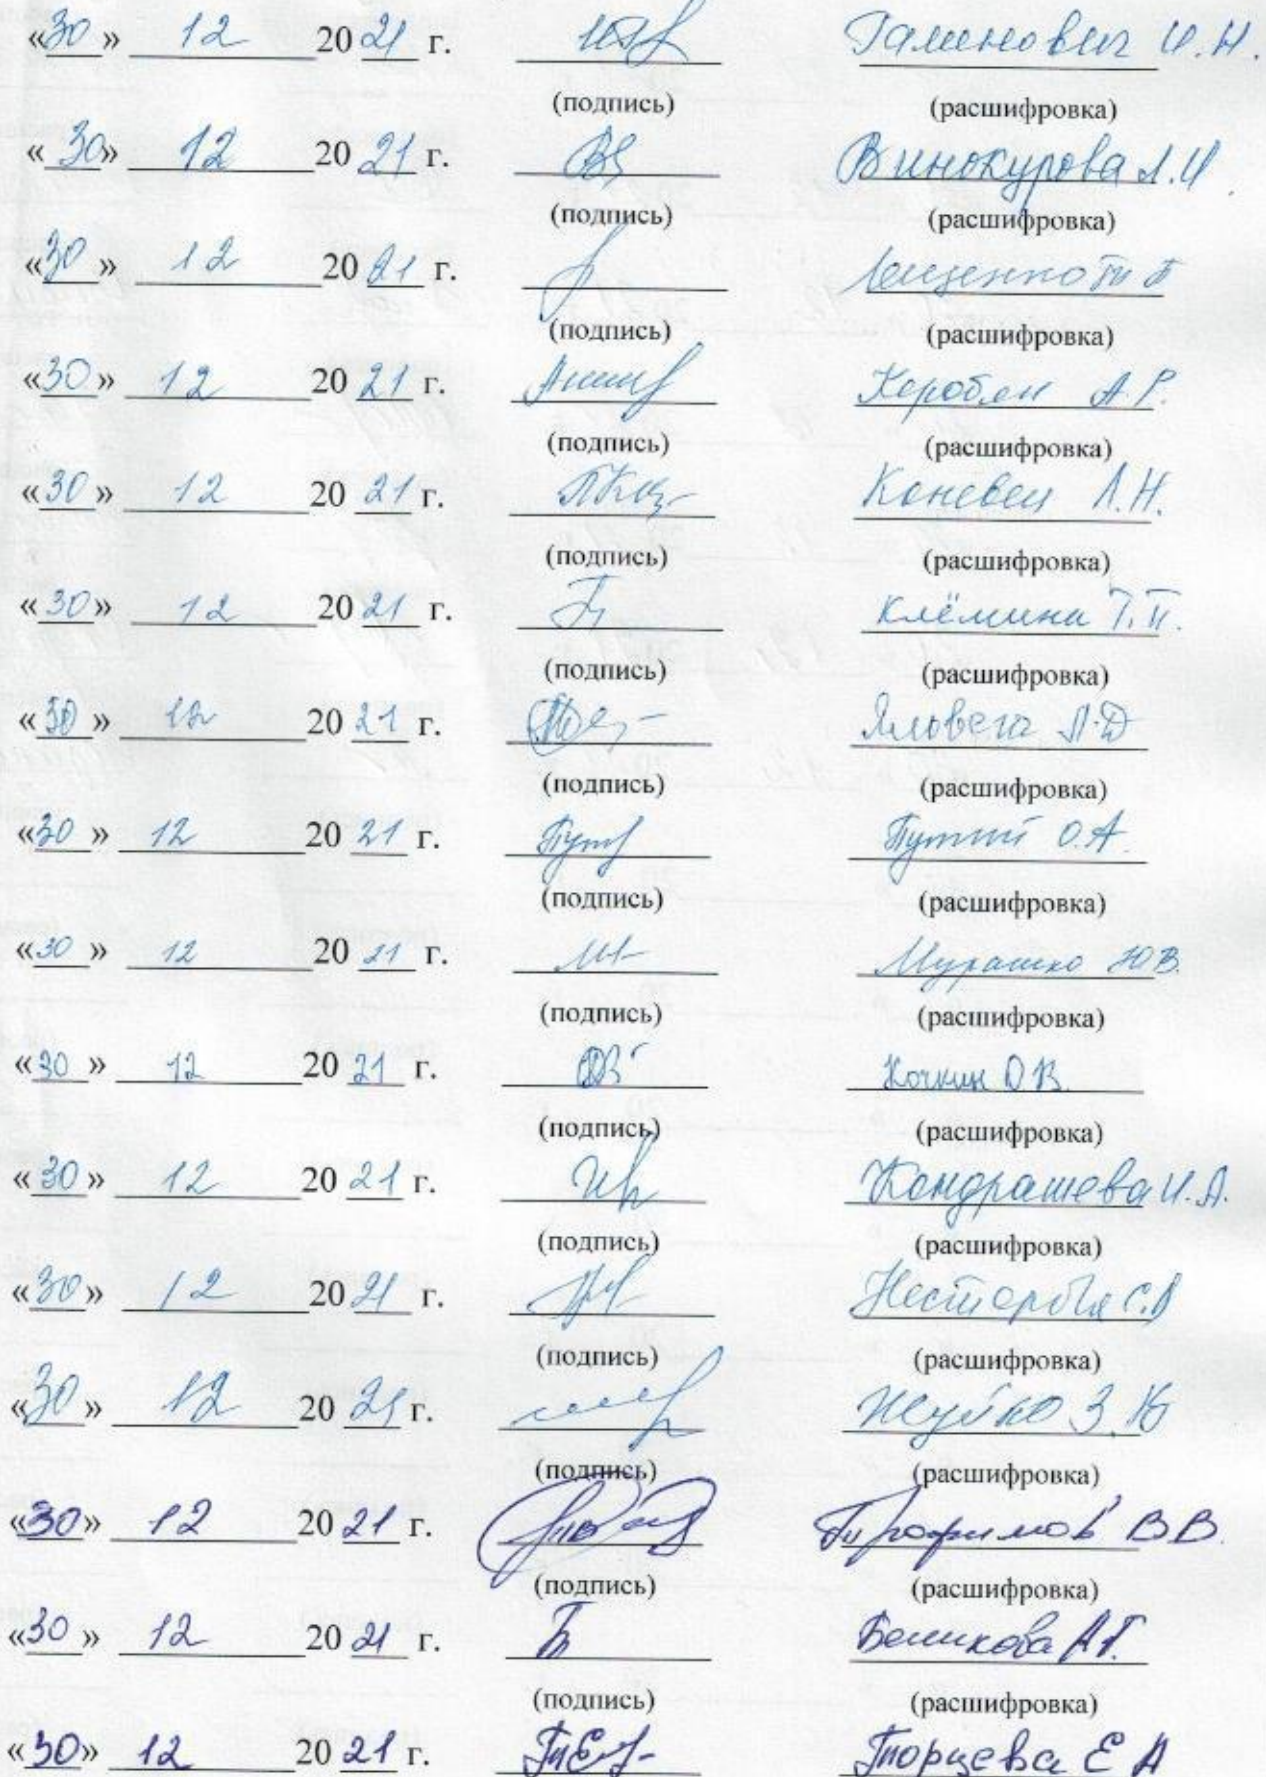 «30» 12 2021 г. Галинович И.Н.
(подпись) (расшифровка)
«30» 12 2021 г. Винокурова Л.И.
(подпись) (расшифровка)
«30» 12 2021 г. Лещенко Т Б
(подпись) (расшифровка)
«30» 12 2021 г. Керобян А.Р.
(подпись) (расшифровка)
«30» 12 2021 г. Коневец Л.Н.
(подпись) (расшифровка)
«30» 12 2021 г. Клёмина Т.П.
(подпись) (расшифровка)
«30» 12 2021 г. Яловега Л.Д
(подпись) (расшифровка)
«30» 12 2021 г. О.А.
(подпись) (расшифровка)
«30» 12 2021 г. Мурашко Ю.В.
(подпись) (расшифровка)
«30» 12 2021 г. Кочкин О.В.
(подпись) (расшифровка)
«30» 12 2021 г. Кондрашева И.А.
(подпись) (расшифровка)
«30» 12 2021 г.
(подпись) (расшифровка)
«30» 12 2021 г. З.Ю
(подпись) (расшифровка)
«30» 12 2021 г. Трофимов В В.
(подпись) (расшифровка)
«30» 12 2021 г. Беликова А.Г.
(подпись) (расшифровка)
«30» 12 2021 г. Торцева Е А